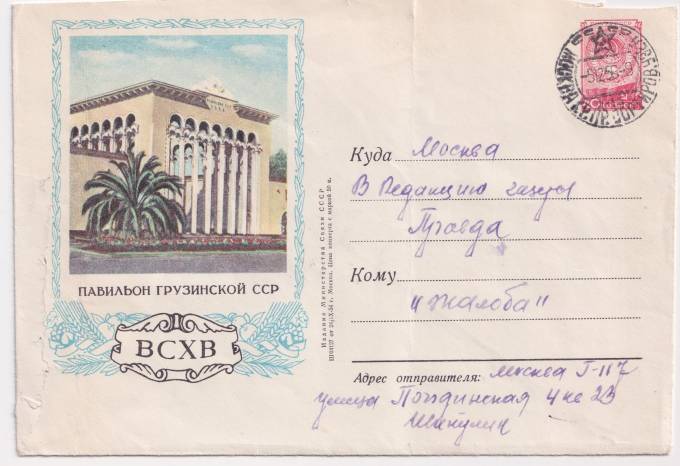 ПАВИЛЬОН ГРУЗИНСКОЙ ССР
ВСХВ
Издание Министерства Связи СССР
Куда Москва
В Редакцию газеты
Правда
Кому
"Жалоба"
Адрес отправителя: Москва Г-117
улица Погодинская 4 кв 23
Шикулин